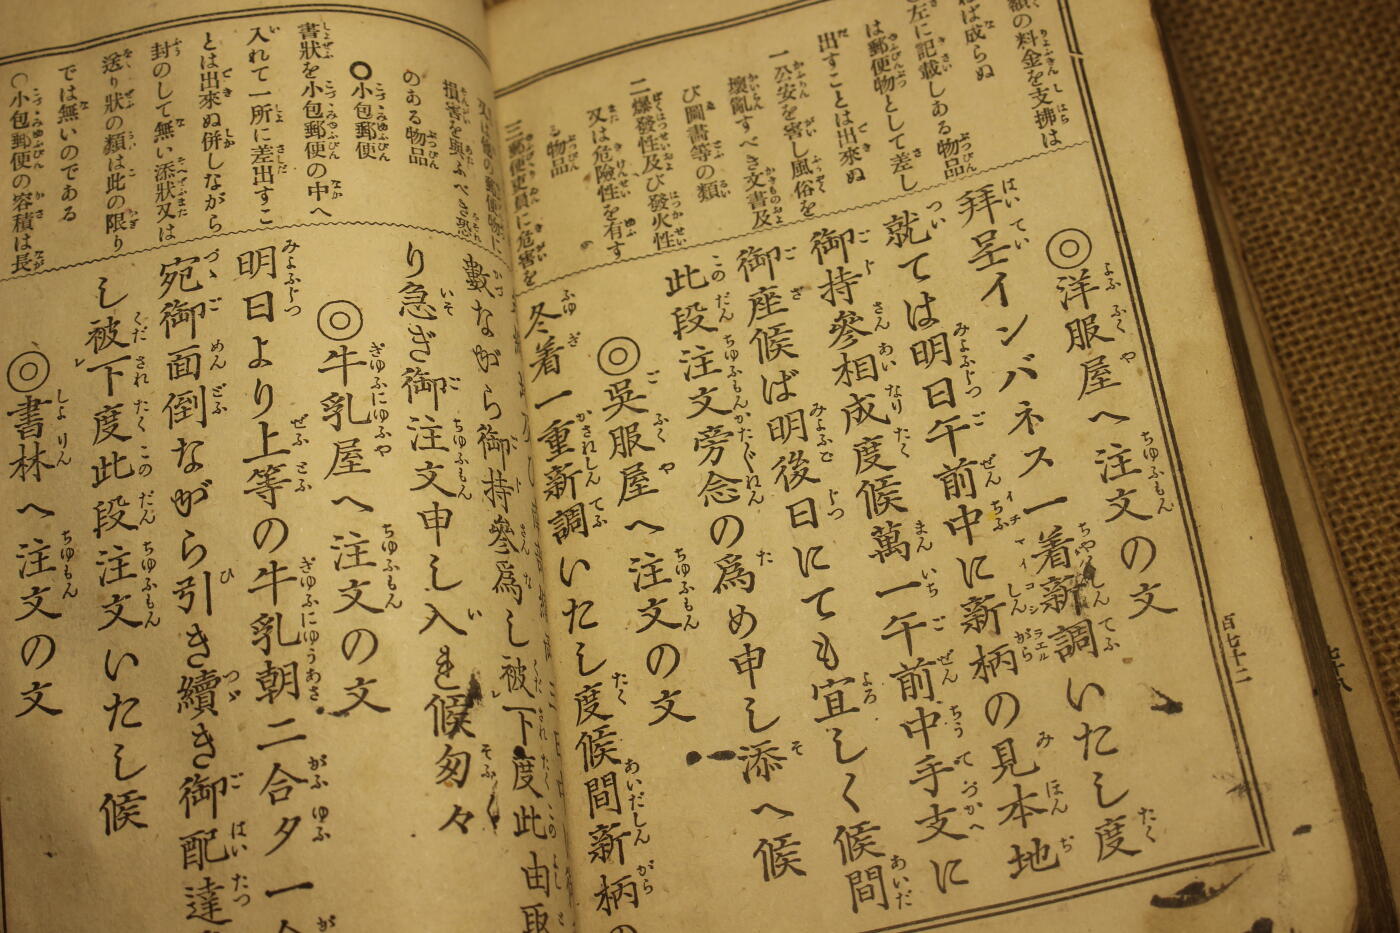 額の料金を支拂は
ねば成らぬ
○左に記載しある物品
は郵便物として差し
出すことは出來ぬ
一公安を害し風俗を
壞亂すべき文書及
び圖書等の類
二爆發性及び發火性
又は危險性を有す
る物品
三郵便吏員に危害を
◎洋服屋へ注文の文
拜呈インバネス一着新調いたし度
就ては明日午前中に新柄の見本地
御持參相成度候萬一午前中手支に
御座候ば明後日にても宜しく候間
此段注文旁念の爲め申し添へ候
◎吳服屋へ注文の文
冬着一重新調いたし度候間新柄の
百七十二
又は他の郵便物に
損害を與ふべき恐
のある物品
○小包郵便
書狀を小包郵便の中へ
入れて一所に差出すこ
とは出來ぬ併しながら
封のして無い添狀又は
送り狀の類は此の限り
では無いのである
○小包郵便の容積は長
數ながら御持參爲し被下度此由取
り急ぎ御注文申し入れ候匆々
◎牛乳屋へ注文の文
明日より上等の牛乳朝二合夕一合
宛御面倒ながら引き續き御配達
し被下度此段注文いたし候
◎書林へ注文の文